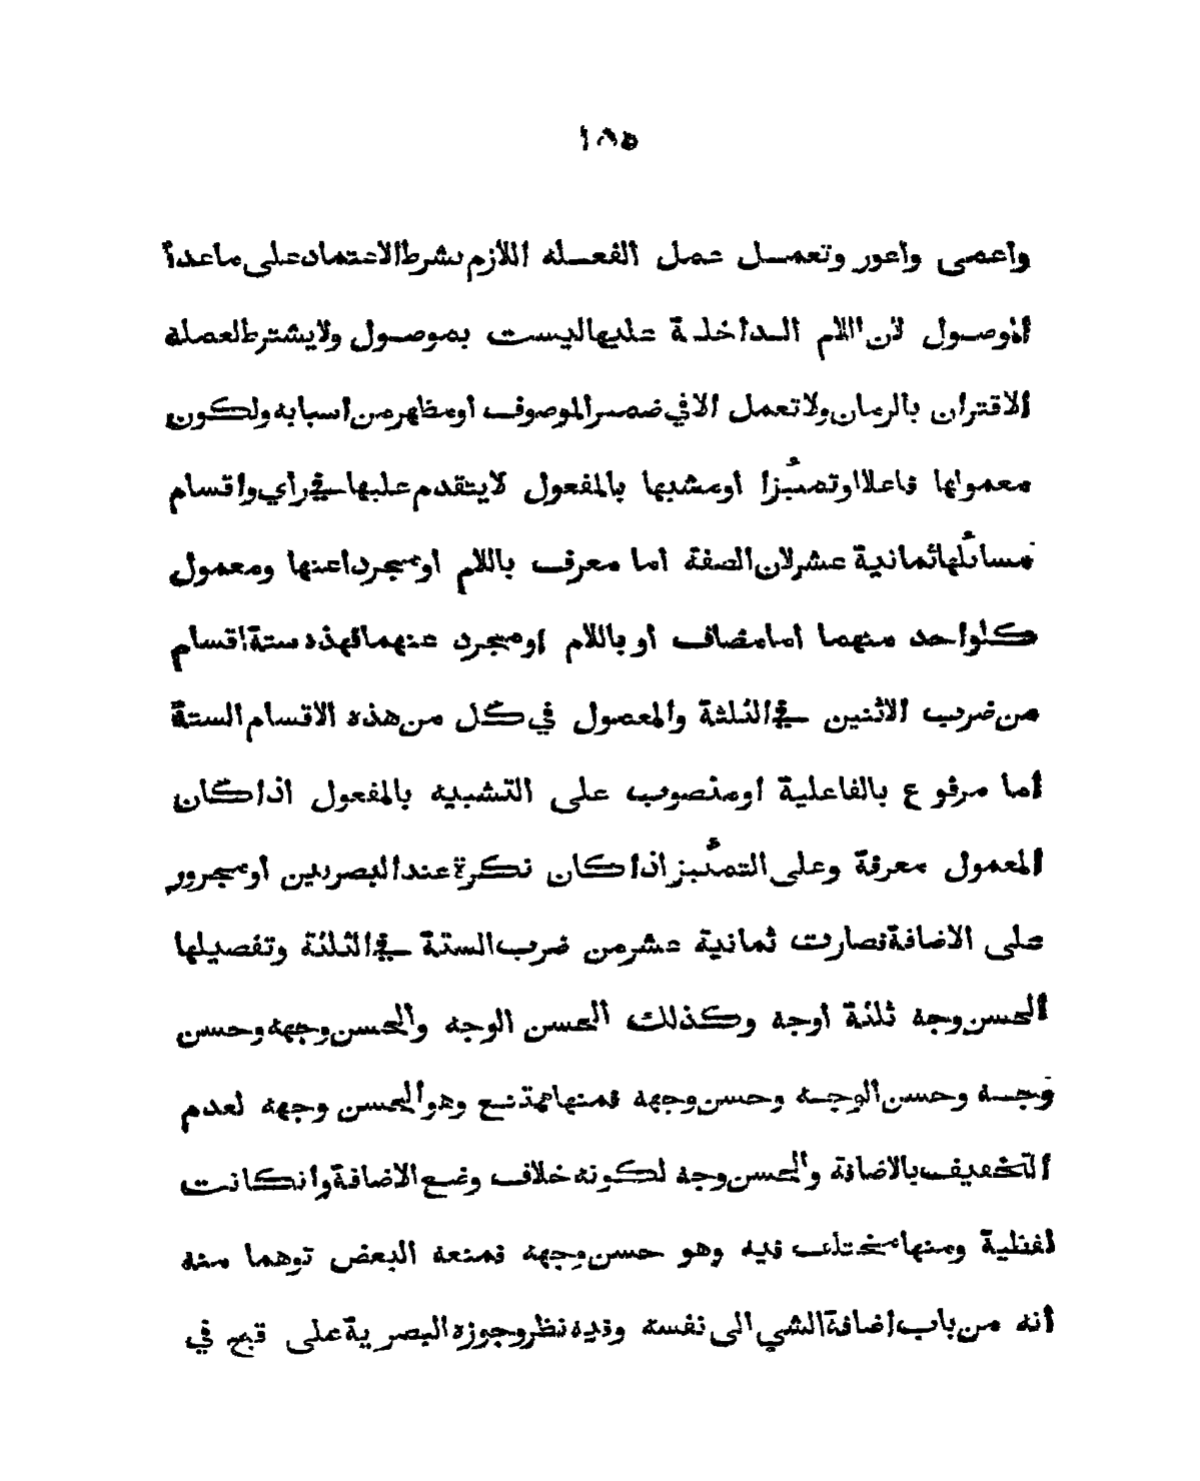 ١٨٥
واعمى واعور وتعمل عمل الفعله اللازم بشرط الاعتماد على ما عدا
الموصول لان اللام الداخلة عليها ليست بموصول ولا يشترط لعمله
الاقتران بالزمان ولا تعمل الا في ضمير الموصوف او مظهر من اسبابه ولكون
معمولها فاعلا او تمئيزا او مشبها بالمفعول لا يتقدم عليها في رأي واقسام
مسائلها ثمانية عشر لان الصفة اما معرف باللام او مجردا عنها ومعمول
كلواحد منهما اما مضاف او باللام او مجرد عنهما فهذه ستة اقسام
من ضرب الاثنين في الثلثة والمعمول في كل من هذه الاقسام الستة
اما مرفوع بالفاعلية او منصوب على التشبيه بالمفعول اذا كان
المعمول معرفة وعلى التمئيز اذا كان نكرة عند البصريين او مجرور
على الاضافة فصارت ثمانية عشر من ضرب الستة في الثلثة وتفصيلها
الحسن وجه ثلثة أوجه وكذلك الحسن الوجه والحسن وجهه وحسن
وجه وحسن الوجه وحسن وجهه فمنها ممتنع وهو الحسن وجهه لعدم
التخفيف بالاضافة والحسن وجه لكونه خلاف وضع الاضافة وانكانت
لفظية ومنها مختلف فيه وهو حسن وجهه فمنعه البعض توهما منه
أنه من باب اضافة الشي الى نفسه وفيه نظر وجوزه البصرية على قبح في